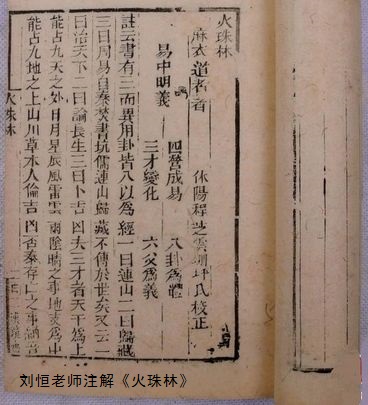 火珠林
麻衣道者著 休陽程芝雲坪氏校正
易中明義
四營成易 八卦為體
三才變化 六爻為義
註云書有三而異用卦皆八以為經一曰連山二曰歸藏
三曰周易自秦焚書坑儒連山歸藏不傳於世矣又云一
曰治天下二曰論長生三曰卜吉凶夫三才者天為上
能占九天之外日月星辰風雷雲雨陰晴之事地支為中
能占九地之上山川草木人倫吉凶否泰存亡之事納音
火珠林
刘恒老师注解《火珠林》